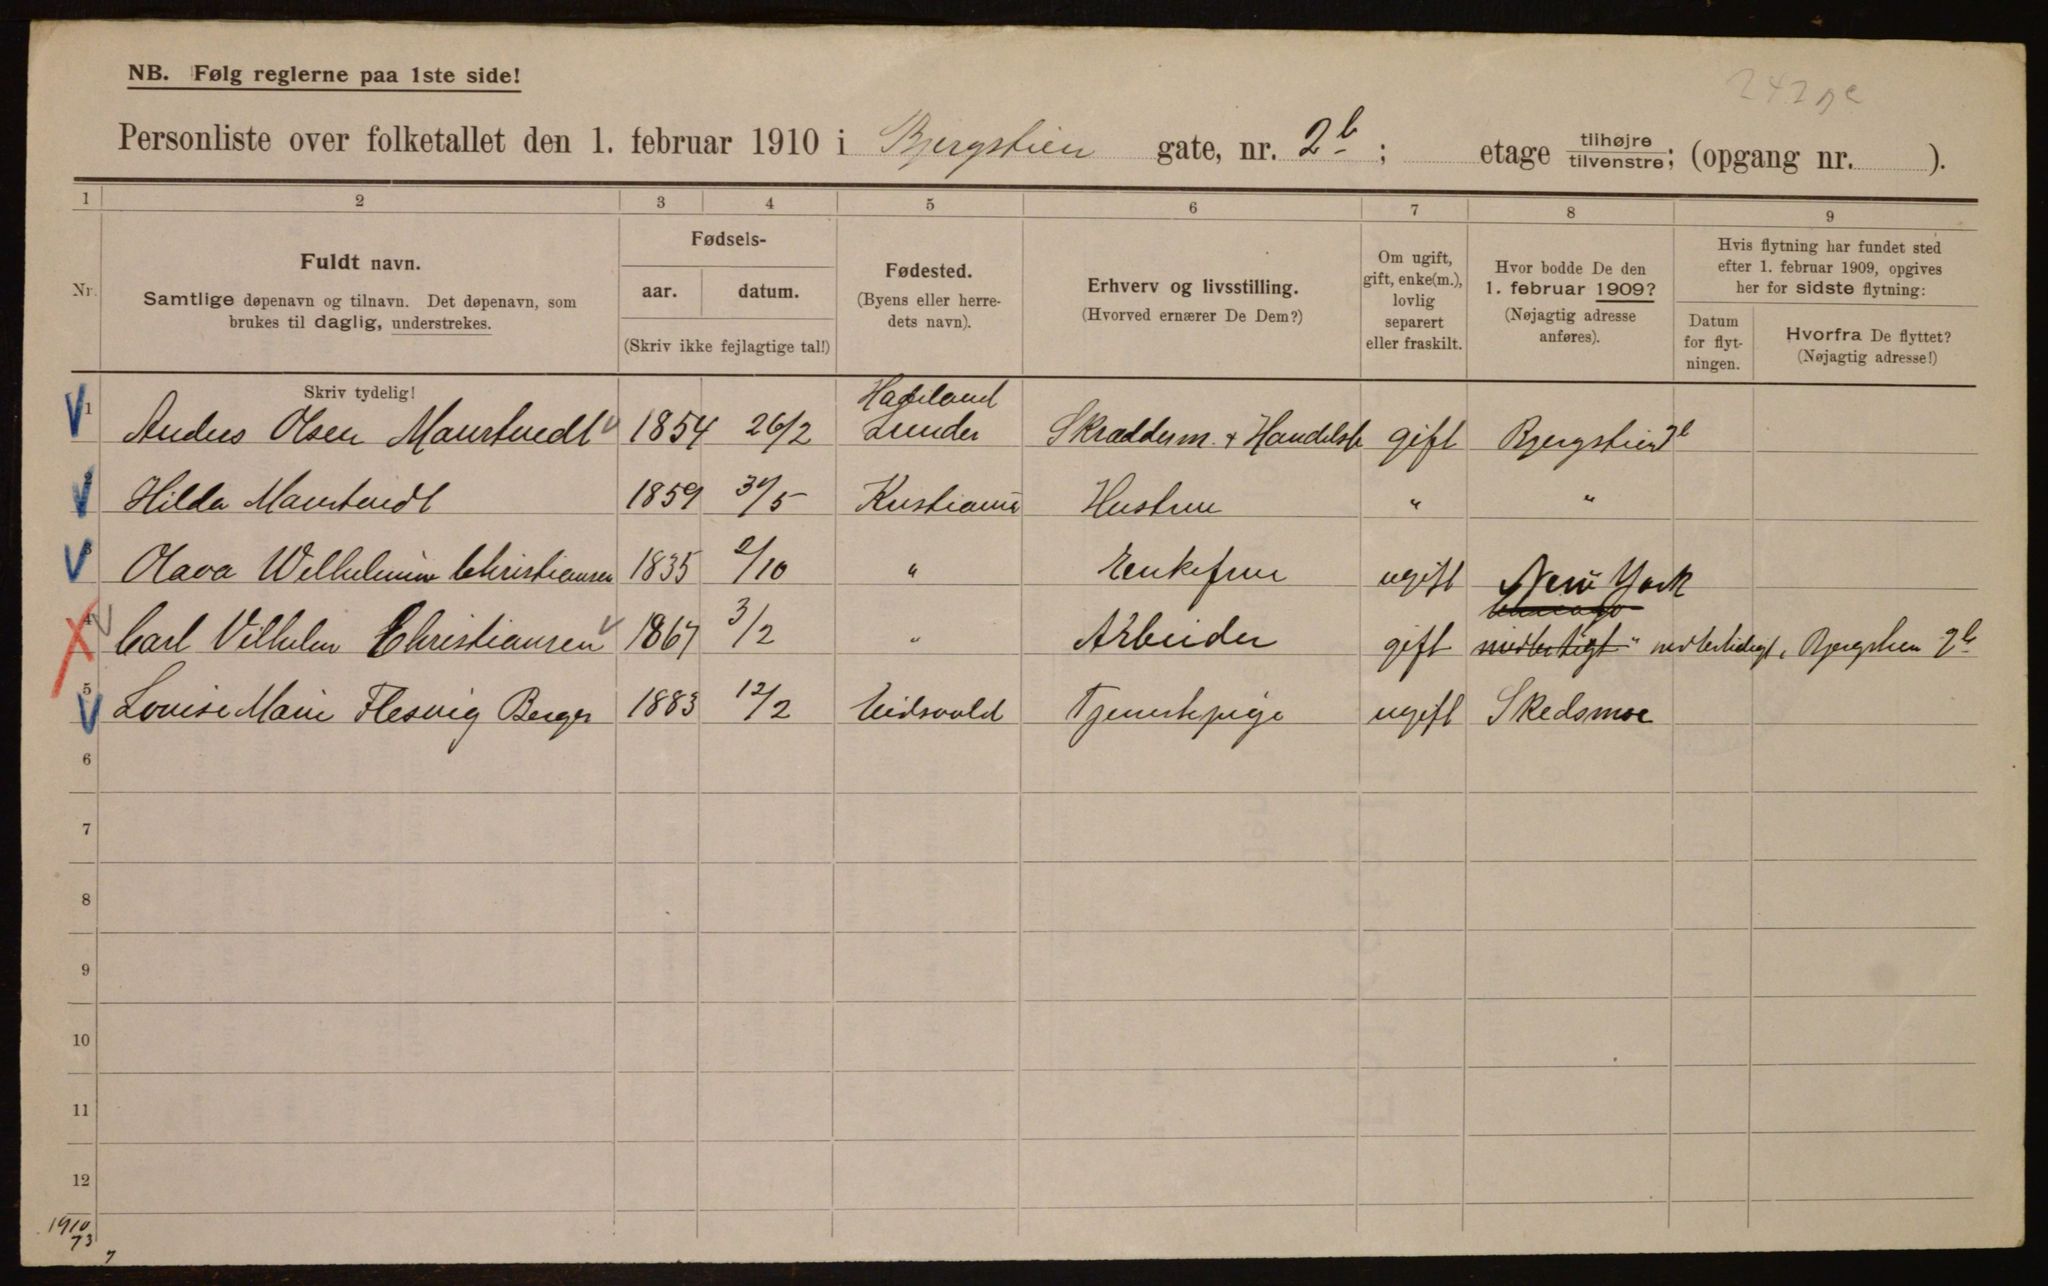 NB. Følg reglerne paa 1ste side!
Personliste over folketallet den 1. februar 1910 i Bjergstien gate, nr. 2b; etage tilhøjre tilvenstre; (opgang nr. ).
1 2 3 4 5 6 7 8 9
Nr.
Fuldt navn.
Samtlige døpenavn og tilnavn. Det døpenavn, som
brukes til daglig, understrekes.
Fødsels-
aar. datum.
(Skriv ikke fejlagtige tal!)
Fødested.
(Byens eller herre-
dets navn).
Erhverv og livsstilling.
(Hvorved ernærer De Dem?)
Om ugift,
gift, enke(m.),
lovlig
separert
eller fraskilt.
Hvor bodde De den
1. februar 1909?
(Nøjagtig adresse
anføres).
Hvis flytning har fundet sted
efter 1. februar 1909, opgives
her for sidste flytning:
Datum
for flyt-
ningen.
Hvorfra De flyttet?
(Nøjagtig adresse!)
Skriv tydelig!
Hadeland
1 Anders Olsen 1854 26/2 Lunder Skræddersm. + Handelsb gift Bjergstien 2b
2 Hilda 1859 /5 Kristiania Hustru " "
3 Olava Wilhelmine Christiansen 1835 2/10 " Enkefrue ugift New York
4 Carl Vilhelm Christiansen 1867 3/2 " Arbeider gift midlertidigt, Bjergstien 2b
5 Louise Marie Flesvig Berger 1883 12/2 Eidsvold Tjenestepige ugift Skedsmoe
6
7
8
9
10
11
12
1910
73